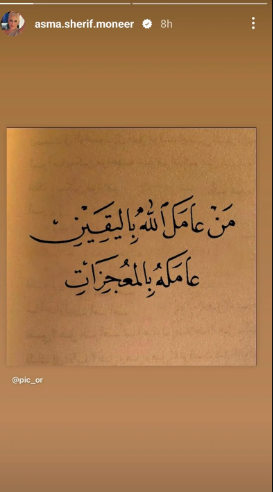 asma.sherif.moneer 8h
مَنْ عَامَلَ ٱللهَ بِاليَقِيْنِ
عَامَلَهُ بِالمُعْجِزَاتِ
@pic_or